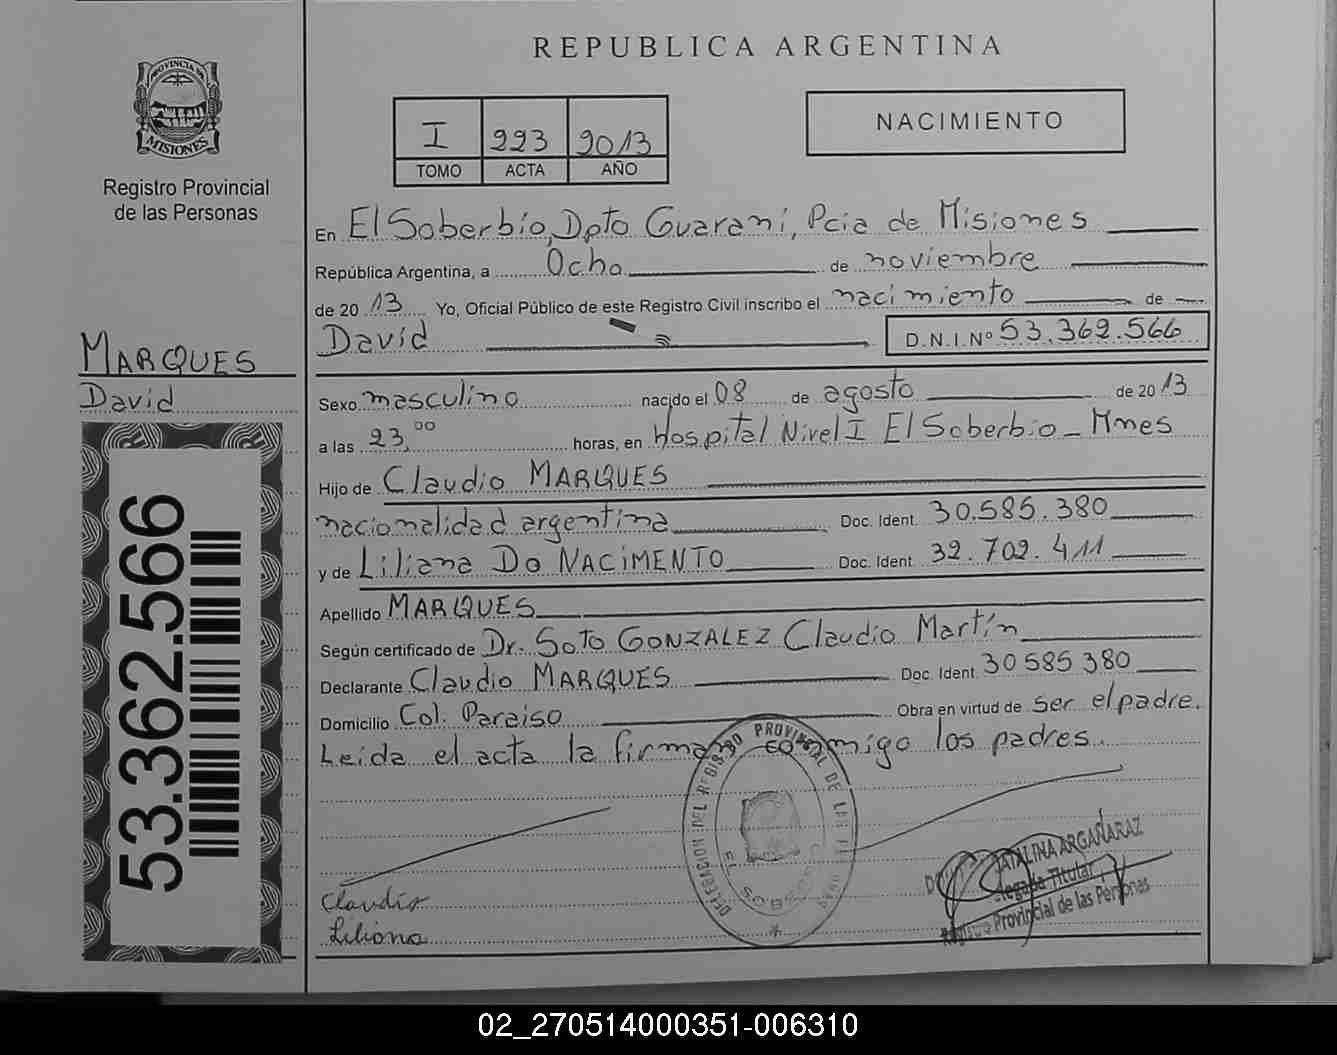 REPUBLICA ARGENTINA
PROVINCIA DE
MISIONES
Registro Provincial
de las Personas
I 223 2013
TOMO ACTA AÑO
NACIMIENTO
En El Soberbio, Dpto Guaraní, Pcia de Misiones
República Argentina, a Ocho de noviembre
de 20 13 Yo, Oficial Público de este Registro Civil inscribo el nacimiento de
David D.N.I.Nº 53.362.566
MARQUES
David
Sexo masculino nacido el 08 de agosto de 20 13
a las 23,00 horas, en Hospital Nivel I El Soberbio - Mnes
Hijo de Claudio MARQUES
nacionalidad argentina Doc. Ident. 30.585.380
y de Liliana Do NACIMENTO Doc. Ident. 32.702.411
Apellido MARQUES
Según certificado de Dr. SOTO GONZALEZ Claudio Martín
Declarante Claudio MARQUES Doc. Ident. 30585380
Domicilio Col. Paraiso Obra en virtud de ser el padre.
Leída el acta la firman conmigo los padres.
53.362.566
DELEGACION DEL REGISTRO PROVINCIAL DE LAS
EL SOBERBIO
CATALINA ARGAÑARAZ
Delegada Titular
Registro Provincial de las Personas
Claudio
Liliana
02_270514000351-006310